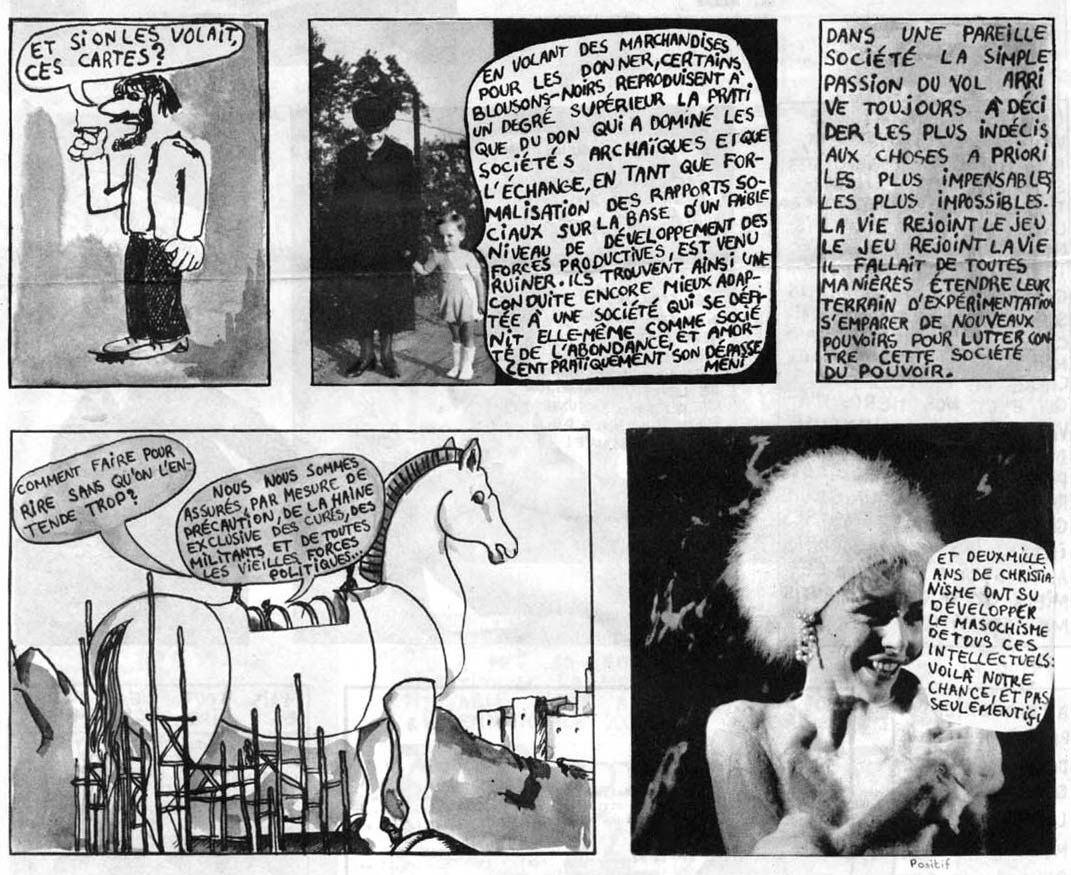 ET SI ON LES VOLAIT,
CES CARTES?
EN VOLANT DES MARCHANDISES
POUR LES DONNER, CERTAINS
BLOUSONS-NOIRS REPRODUISENT À
UN DEGRÉ SUPÉRIEUR LA PRATI
QUE DU DON QUI A DOMINÉ LES
SOCIÉTÉS ARCHAÏQUES ET QUE
L'ÉCHANGE, EN TANT QUE FOR-
MALISATION DES RAPPORTS SO-
CIAUX SUR LA BASE D'UN FAIBLE
NIVEAU DE DÉVELOPPEMENT DES
FORCES PRODUCTIVES, EST VENU
RUINER. ILS TROUVENT AINSI UNE
CONDUITE ENCORE MIEUX ADAP-
TÉE À UNE SOCIÉTÉ QUI SE DÉFI-
NIT ELLE-MÊME COMME SOCIÉ
TÉ DE L'ABONDANCE, ET AMOR-
CENT PRATIQUEMENT SON DÉPASSE
MENT
DANS UNE PAREILLE
SOCIÉTÉ LA SIMPLE
PASSION DU VOL ARRI
VE TOUJOURS À DÉCI
DER LES PLUS INDÉCIS
AUX CHOSES A PRIORI
LES PLUS IMPENSABLES
LES PLUS IMPOSSIBLES.
LA VIE REJOINT LE JEU
LE JEU REJOINT LA VIE
IL FALLAIT DE TOUTES
MANIÈRES ÉTENDRE LEUR
TERRAIN D'EXPÉRIMENTATION
S'EMPARER DE NOUVEAUX
POUVOIRS POUR LUTTER CON-
TRE CETTE SOCIÉTÉ
DU POUVOIR.
COMMENT FAIRE POUR
RIRE SANS QU'ON L'EN-
TENDE TROP?
NOUS NOUS SOMMES
ASSURÉS, PAR MESURE DE
PRÉCAUTION, DE LA HAINE
EXCLUSIVE DES CURÉS, DES
MILITANTS ET DE TOUTES
LES VIEILLES FORCES
POLITIQUES...
ET DEUX MILLE
ANS DE CHRISTIA-
NISME ONT SU
DÉVELOPPER
LE MASOCHISME
DE TOUS CES
INTELLECTUELS:
VOILÀ NOTRE
CHANCE, ET PAS
SEULEMENT ICI
Positif